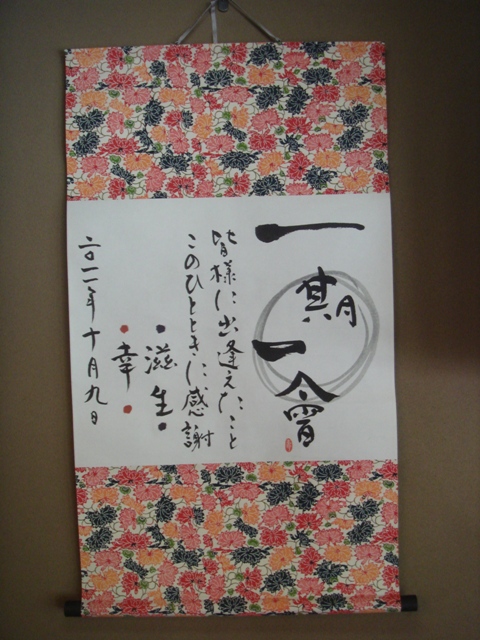 一期一會
皆様に出逢えたこと
このひとときに感謝
滋生
幸
二〇一一年十月九日